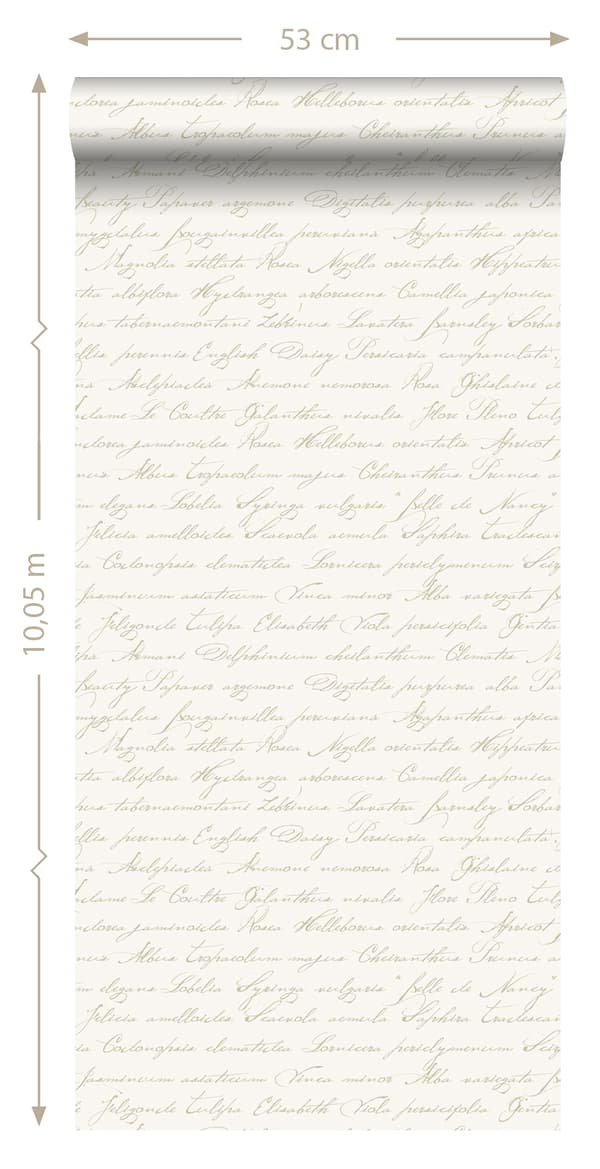 53 cm
10,05 m
dorea jaminoides Rosea Helleborus orientalis Apricot
nus Albus Tropaeolum majus Cheiranthus Prunus a
Armani Delphinium cheilanthum Clematis
Beauty Papaver argemone Digitalis purpurea alba Pa
mygdalus Bougainvillea peruviana Agapanthus africa
Magnolia stellata Rosea Nigella orientalis Hippeatru
tia albiflora Hydrangea arborescens Camellia japonica
hus tabernaemontani Zebrinus Lavatera Barnsley Sorbar
ellis perennis English Daisy Persicaria campanulata.
na Asclepiades Anemone nemorosa Rosa Ghislaine d
adame Le Coultre Galanthus nivalis Flore Pleno Tulip
dorea jaminoides Rosea Helleborus orientalis Apricot
nus Albus Tropaeolum majus Cheiranthus Prunus a
m elegans Lobelia Syringa vulgaris "Belle de Nancy"
Felicia amelloides Scaevola aemula Saphira tradescan
ia Codonopsis clematidea Lornicera periclymenum Sci
Jasmineum asiaticum Vinca minor Alba variegata B
Feligonde Tulipa Elisabeth Viola persicifolia Gentia
Armani Delphinium cheilanthum Clematis
Beauty Papaver argemone Digitalis purpurea alba Pa
mygdalus Bougainvillea peruviana Agapanthus africa
Magnolia stellata Rosea Nigella orientalis Hippeatru
tia albiflora Hydrangea arborescens Camellia japonica
hus tabernaemontani Zebrinus Lavatera Barnsley Sorbar
ellis perennis English Daisy Persicaria campanulata.
na Asclepiades Anemone nemorosa Rosa Ghislaine d
adame Le Coultre Galanthus nivalis Flore Pleno Tulip
dorea jaminoides Rosea Helleborus orientalis Apricot
nus Albus Tropaeolum majus Cheiranthus Prunus a
m elegans Lobelia Syringa vulgaris "Belle de Nancy"
Felicia amelloides Scaevola aemula Saphira tradescan
ia Codonopsis clematidea Lornicera periclymenum Sci
Jasmineum asiaticum Vinca minor Alba variegata B
Feligonde Tulipa Elisabeth Viola persicifolia Gentia